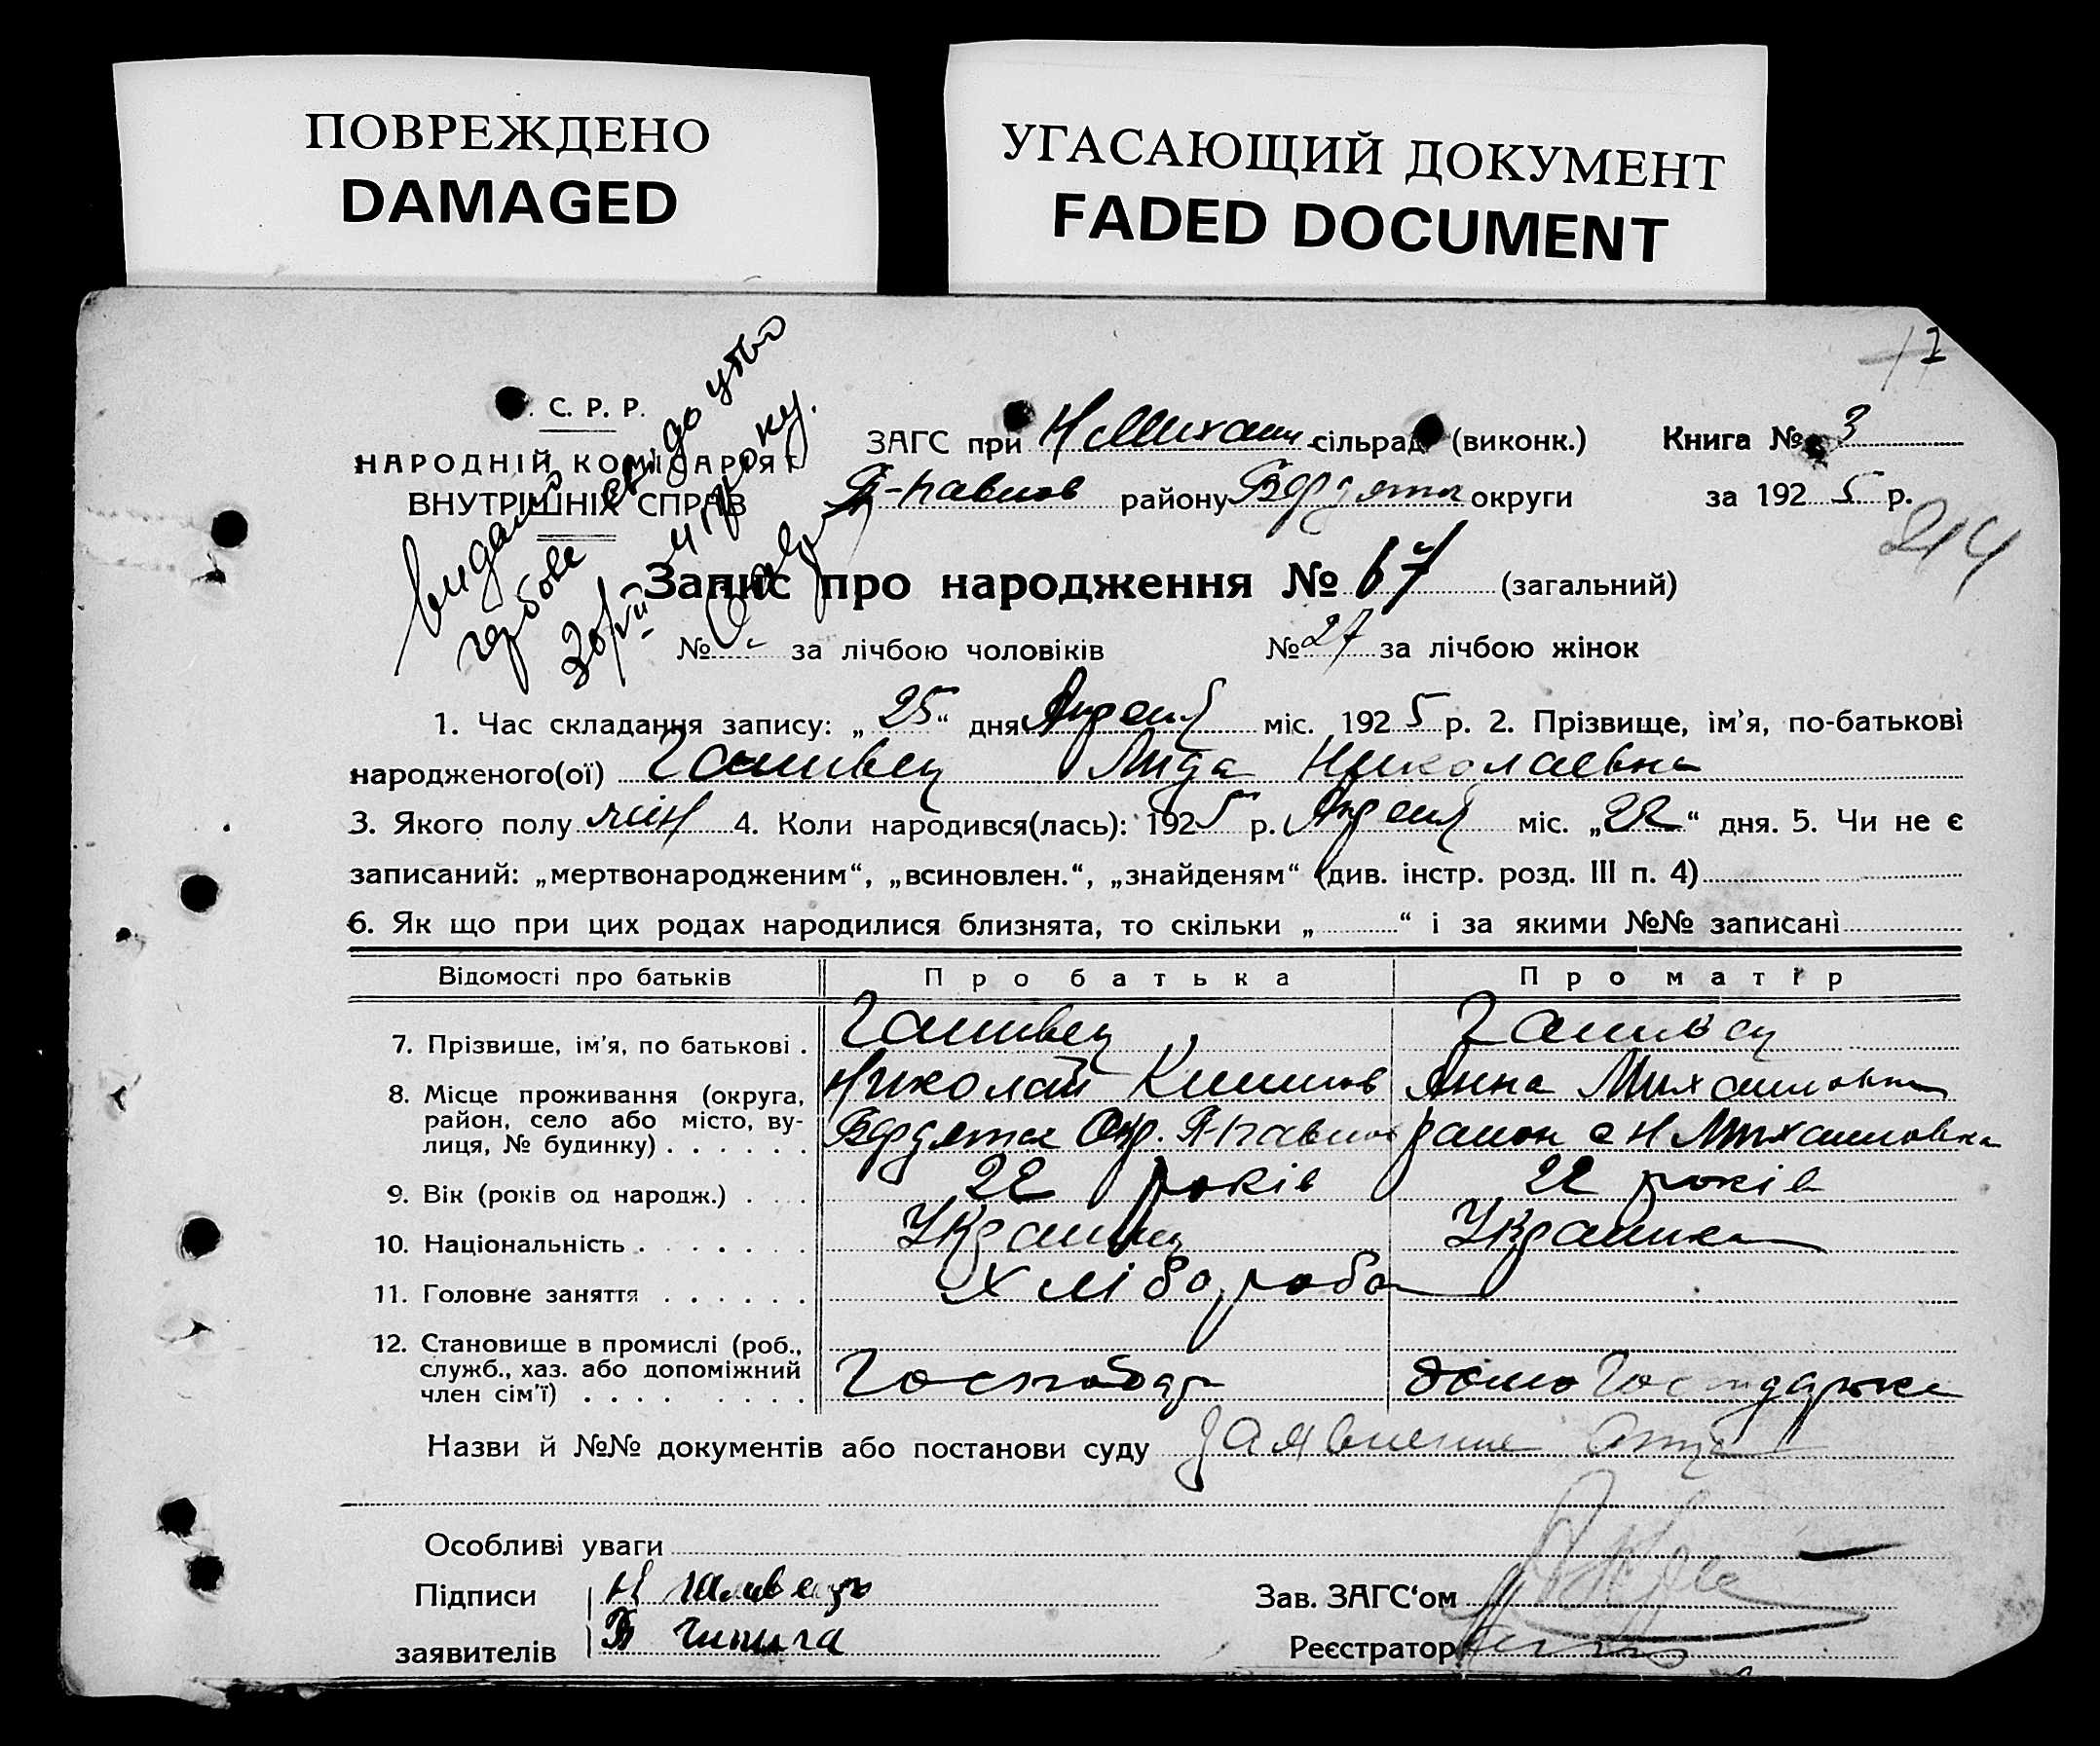 ПОВРЕЖДЕНО
DAMAGED
УГАСАЮЩИЙ ДОКУМЕНТ
FADED DOCUMENT
С. Р. Р.
НАРОДНІЙ КОМІСАРІЯТ
ВНУТРІШНІХ СПРАВ
ЗАГС при сільрад (виконк.) Книга № 3
району округи за 1925 р.
214
Запис про народження № 67 (загальний)
№ за лічбою чоловіків № 27 за лічбою жінок
1. Час складання запису: „25“ дня Апреля міс. 1925 р. 2. Прізвище, ім’я, по-батькові
народженого(ої) Галивец Лида Николаевна
3. Якого полу жін 4. Коли народився(лась): 1925 р. Апреля міс. „22“ дня. 5. Чи не є
записаний: „мертвонародженим“, „всиновлен.“, „знайденям“ (див. інстр. розд. III п. 4)
6. Як що при цих родах народилися близнята, то скільки „ “ і за якими №№ записані
Відомості про батьків Про батька Про матір
7. Прізвише, ім’я, по батькові . Галивец Галивец
Николай Анна Михайловна
8. Місце проживання (округа,
район, село або місто, ву-
лиця, № будинку) . . . . . . Окр. район с Н Михайловка
9. Вік (років од народж.) . . . 22 років 22 років
10. Національність . . . . . . . Украинец Украинка
11. Головне заняття . . . . . . Хлібороба
12. Становище в промислі (роб.,
служб., хаз. або допоміжний
член сім’ї) . . . . . . . . Господар домо Господарка
Назви й №№ документів або постанови суду Заявление Отца
Особливі уваги
Підписи Н Галивец
заявителів
Зав. ЗАГС‘ом
Реєстратор